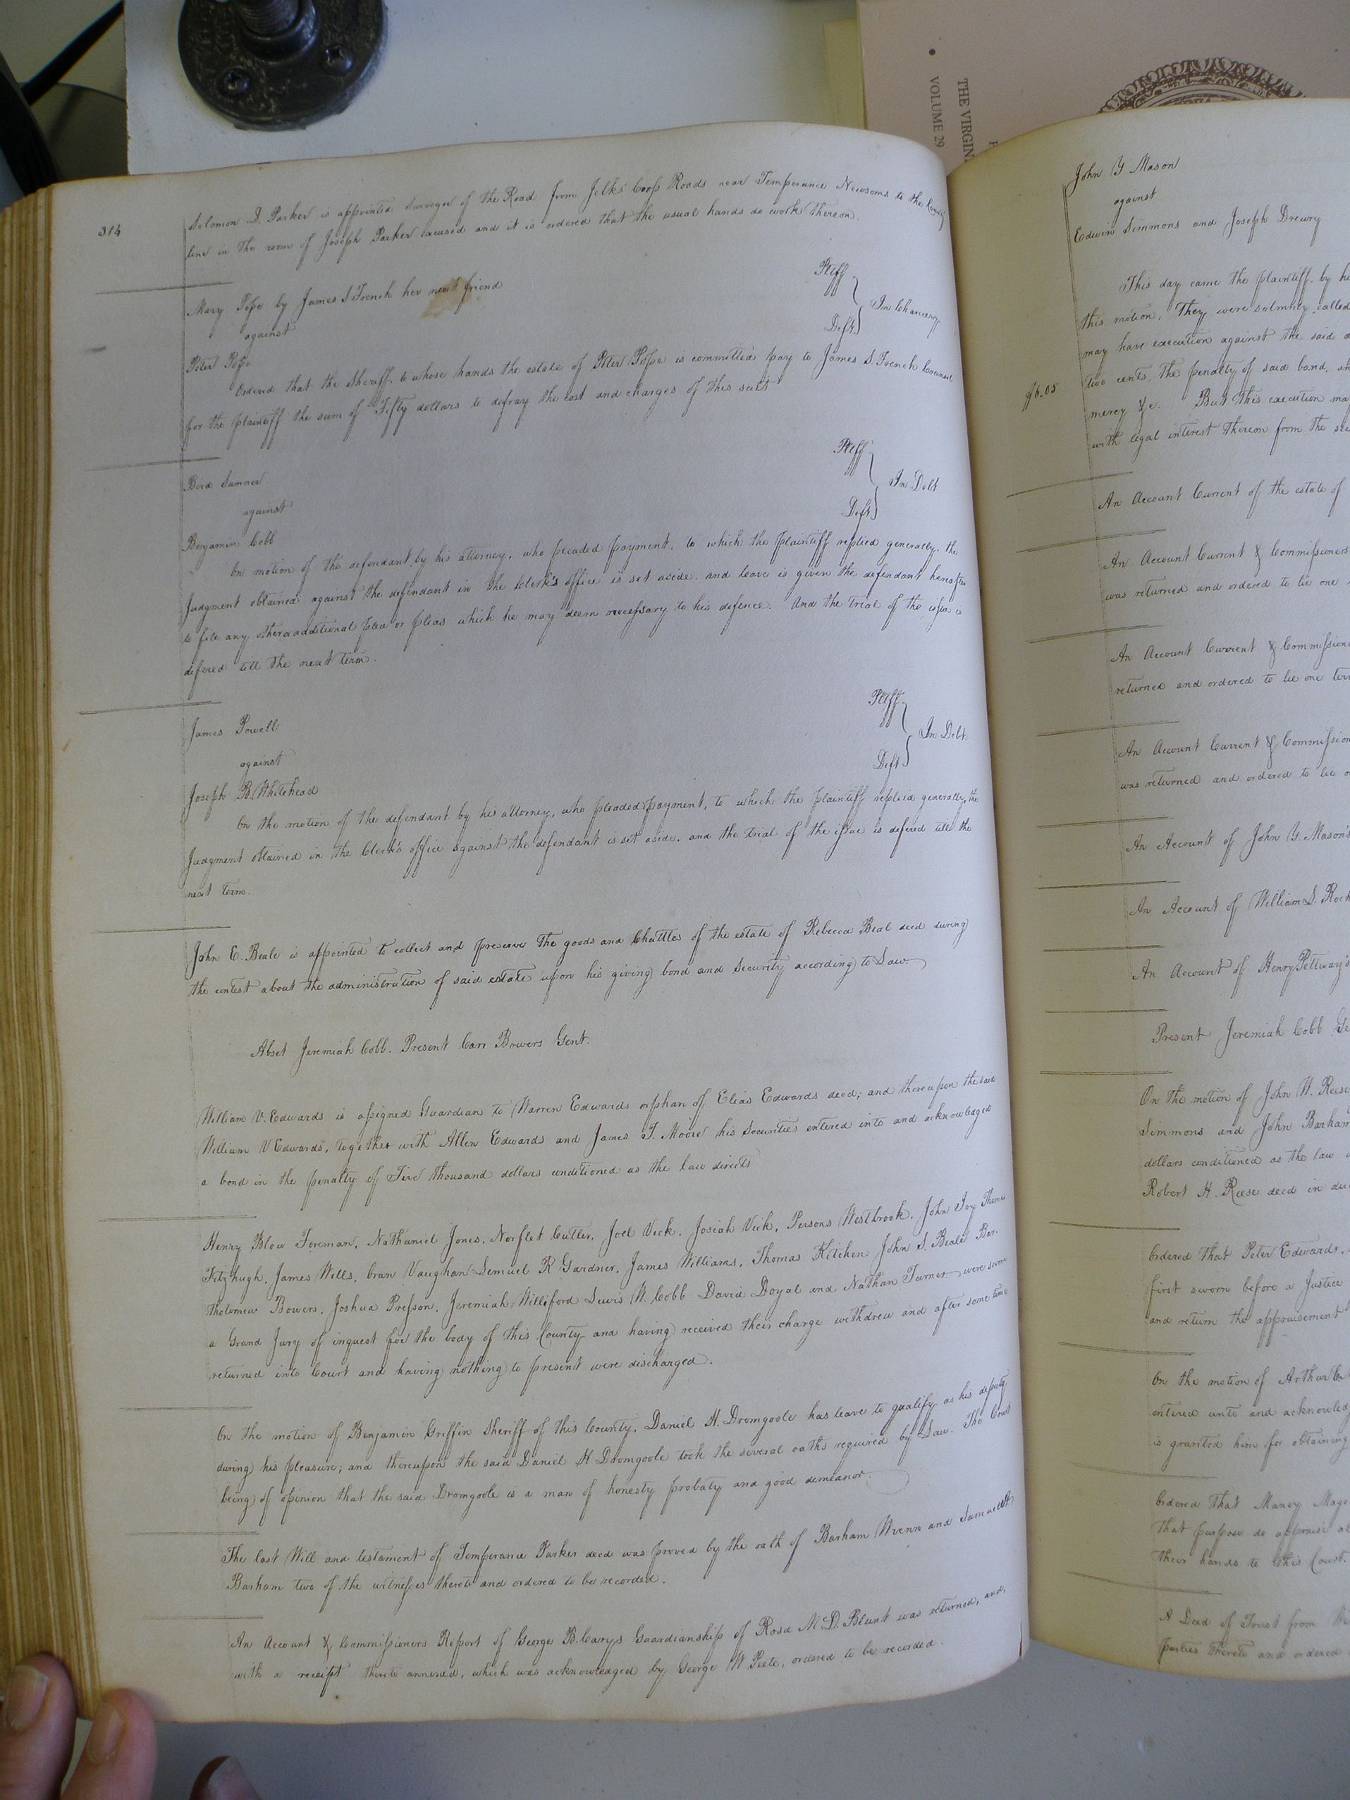 THE VIRGIN
VOLUME 29
314
Solomon D. Parker is appointed Surveyor of the Road from Jilks' Cross Roads near Temperance Newsoms to the County
line in the room of Joseph Parker excused and it is ordered that the usual hands do work thereon.
Mary Pope by James S French her next friend Pltff
against In Chancery
Peter Pope Deft
Ordered that the Sheriff, to whose hands the estate of Peter Pope is committed pay to James S. French Counsel
for the plaintiff the sum of Fifty dollars to defray the cost and charges of this suit
Sumner Pltff
against In Debt
Benjamin Cobb Deft
On motion of the defendant by his attorney, who pleaded payment, to which the plaintiff replied generally, the
Judgment obtained against the defendant in the Clerk's office is set aside and leave is given the defendant hereafter
to file any other additional plea or pleas which he may deem necessary to his defence. And the trial of the issue is
defered till the next term.
James Powell Pltff
against In Debt
Joseph B. Whitehead Deft
On the motion of the defendant by his attorney, who pleaded payment, to which the plaintiff replied generally, the
Judgment obtained in the Clerk's office against the defendant is set aside. and the trial of the issue is defered till the
next term.
John E. Beale is appointed to collect and preserve the goods and Chattles of the estate of Rebecca Beal decd during
the contest about the administration of said estate upon his giving bond and security according to Law
Abset Jeremiah Cobb. Present Carr Bowers Gent.
William V. Edwards is assigned Guardian to Warren Edwards orphan of Elias Edwards decd; and thereupon the said
William V Edwards, together with Allen Edwards and James T. Moore his Securities entered into and acknowledged
a bond in the penalty of Five thousand dollars conditioned as the law directs
Henry Blow Foreman, Nathaniel Jones, Norflet Cutler, Joel Vick, Josiah Vick, Persons Westbrook, John Ivy Thomas
Fitzhugh, James Wills, Evan Vaughan Samuel R Gardner, James Williams, Thomas Kitchen John S. Beale Bar
tholomew Bowers, Joshua Presson, Jeremiah Williford Lewis W. Cobb David Doyal and Nathan Turner were sworn
a Grand Jury of inquest for the body of this County and having received their charge withdrew and after some time
returned into Court and having nothing to present were discharged.
On the motion of Benjamin Griffin Sheriff of this County, Daniel H. Dromgoole has leave to qualify as his deputy
during his pleasure; and thereupon the said Daniel H Dromgoole took the several oaths required by Law. The Court
being of opinion that the said Dromgoole is a man of honesty probaty and good demeanor.
The last Will and testament of Temperance Parker decd was proved by the oath of Barham Wrenn and Samuel
Barham two of the witnesses thereto and ordered to be recorded.
An Account & Commissioners Report of George B. Carys Guardianship of Rosa M. D. Blunt was returned, and,
with a receipt thereto annexed, which was acknowledged by George W Peete, ordered to be recorded.
John Y Mason
against
Edwin Simmons and Joseph Drewry
This day came the plaintiff by
this motion. They were solmnly called
may have execution against the said
two cents, the penalty of said bond,
mercy &c. But this execution may
with legal interest thereon from the
An Account Current of the estate of
An Account Current & Commissioners
was returned and ordered to lie one
An Account Current & Commission
returned and ordered to lie one
An Account Current & Commission
was returned and ordered to lie
An Account of John Y. Mason's
An Account of William S.
An Account of Henry Pettway's
Present Jeremiah Cobb
On the motion of John W. Reese
Simmons and John Barham
dollars conditioned as the law
Robert H. Reese decd in
Ordered that Peter Edwards,
first sworn before a Justice
and return the appraisement
On the motion of Arthur
entered into and acknowled
is granted him for obtaining
Ordered that
that purpose do appraise
their hands to this Court.
A Deed of Trust from
parties thereto and ordered